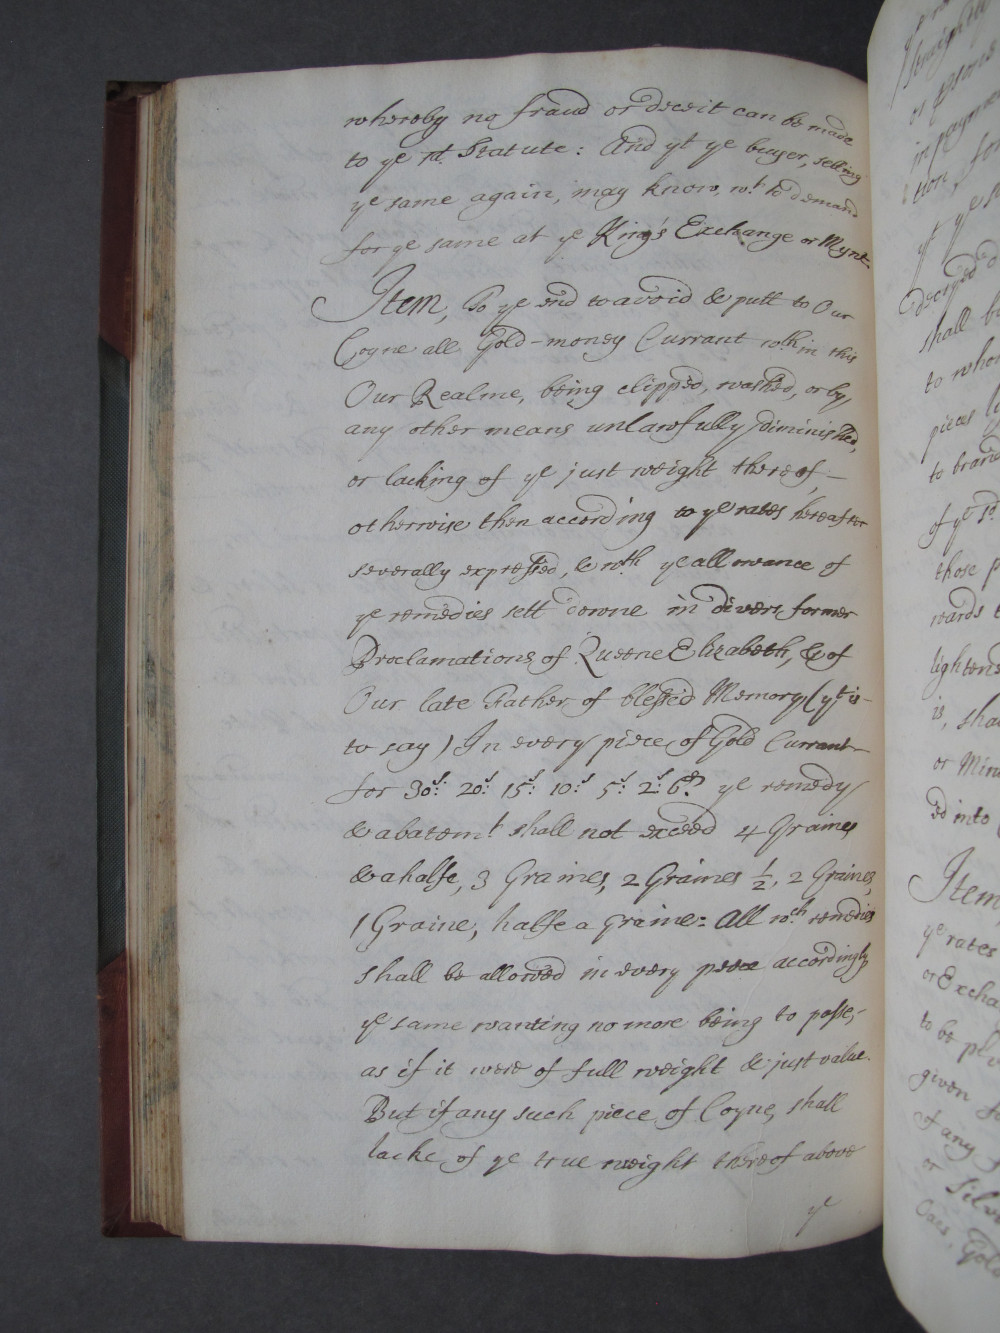 whereby no fraud or deceit can be made
to ye st. Statute: And yt ye buyer, selling
ye same again, may know, wt. to demand
for ye same at ye King's Exchange or Mynt.
Item, To ye end to avoid & putt to Our
Coyne all Gold-money Currant wthin this
Our Realme, being clipped, washed, or by
any other means unlawfully diminished,
or lacking of ye just weight thereof, -
otherwise then according to ye rates hereafter
severally expressed, & wth. ye allowance of
ye remedies sett downe in divers former
Proclamations of Queene Elizabeth, & of
Our late Father of blessed Memory, (yt is -
to say) In every piece of Gold Currant -
for 30s: 20s: 15s: 10s: 5s: 2s: 6d. ye remedy
& abatemt. shall not exceed 4 Graines
& a halfe, 3 Graines, 2 Graines 1/2, 2 Graines,
1 Graine, halfe a graine: All wch. remedies
shall be allowed in every peece accordingly
ye same wanting no more being to passe, -
as if it were of full weight & just value.
But if any such piece of Coyne, shall
lacke of ye true weight thereof above
ye
shall
to whom
pieces
to brand
of ye sd.
those
wards
lighten
is, sha
or Min
ed into
Item
ye rates
or Excha
to be
given
if any
or Silv
Oaes, Gold